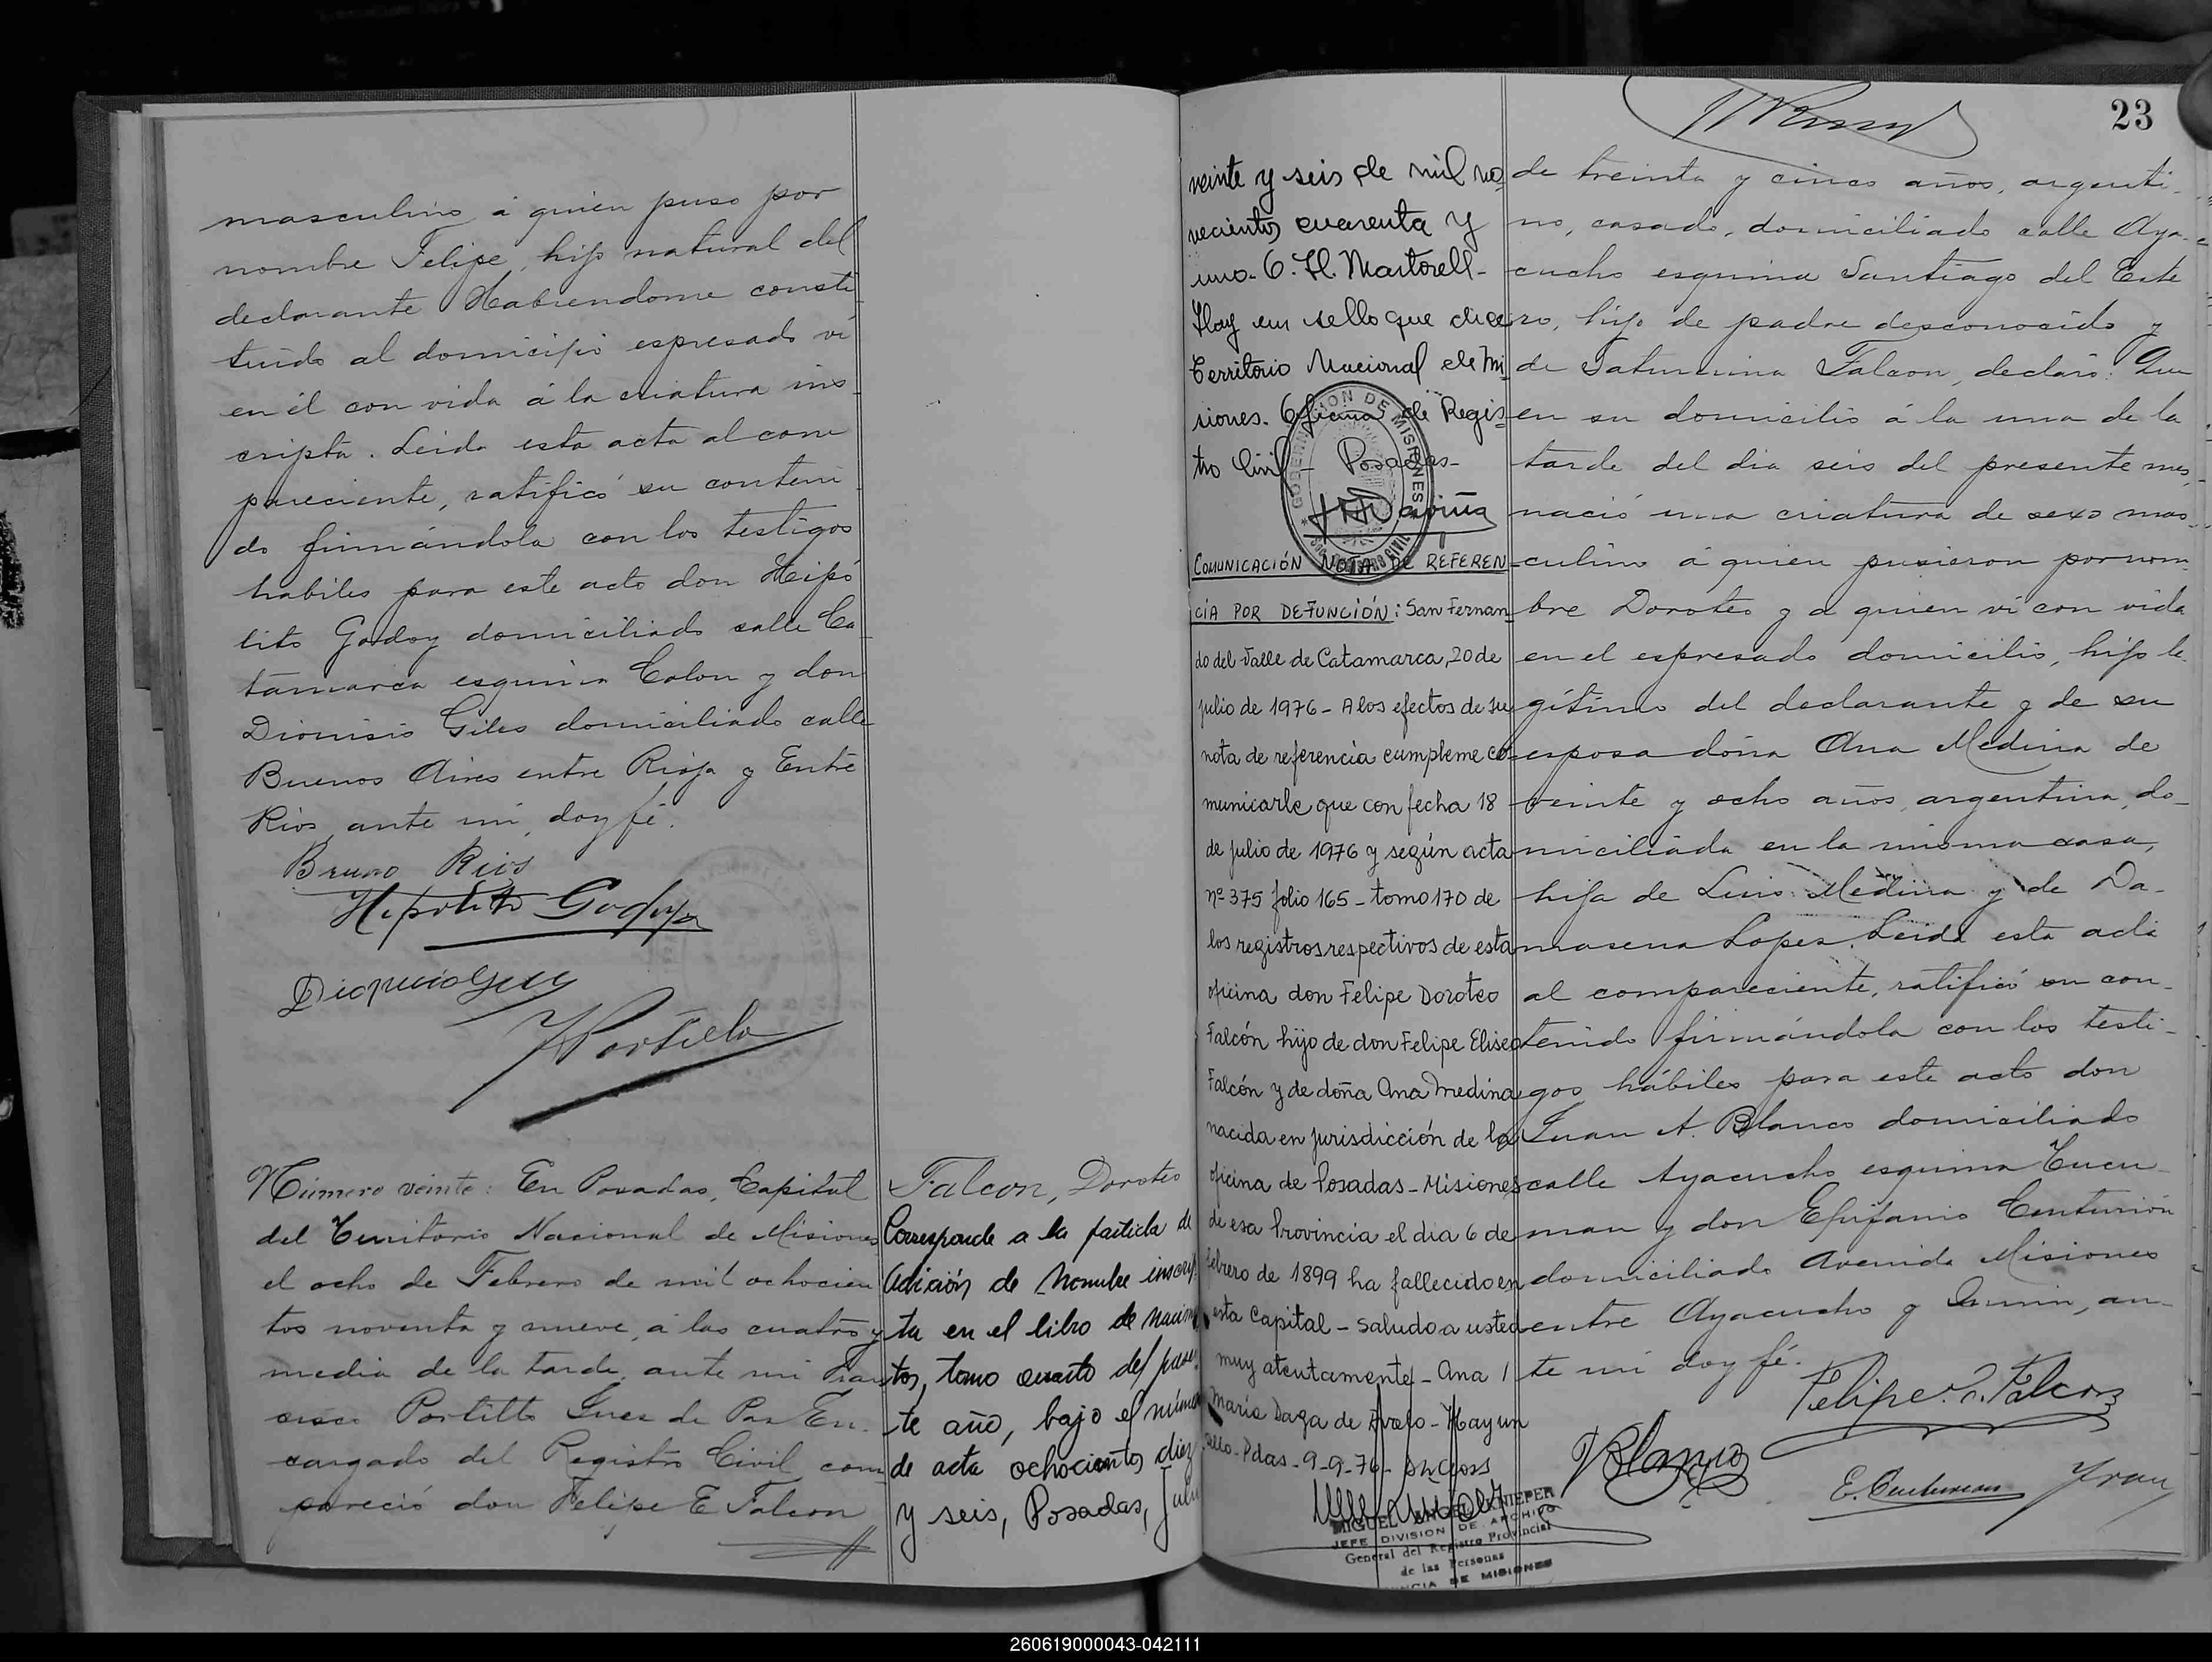 masculino á quien puso por
nombre Felipe, hijo natural del
declarante Habiendome consti
tuido al domicilio espresado vi
en él con vida á la criatura ins
cripta. Leida esta acta al com
pareciente, ratificó su conteni
do firmándola con los testigos
habiles para este acto don Hipó
lito Godoy domiciliado calle Ca
tamarca esquina Colon y don
Dionisio Giles domiciliado calle
Buenos Aires entre Rioja y Entre
Rios, ante mi, doy fé.
Bruno Rios
Hipolito Godoy
HPortillo
Número veinte: En Posadas, Capital
del Territorio Nacional de Misiones
el ocho de Febrero de mil ochocien
tos noventa y nueve, á las cuatro y
media de la tarde, ante mi Fran
cisco Portillo Juez de Paz En-
cargado del Registro Civil com
pareció don Felipe E Falcon
Falcon, Doroteo
Corresponde a la partida de
adición de nombre inscrip
ta en el libro de nacimien
tos, tomo cuarto del presen
te año, bajo el número
de acta ochocientos diez
y seis, Posadas, Julio
23
veinte y seis de mil no
vecientos cuarenta y
uno. O. H. Martorell-
Hay un sello que dice
Territorio Nacional de Mi
siones. Oficina de Regis
tro Civil - Posadas-
COMUNICACIÓN NOTA DE REFEREN
CIA POR DEFUNCIÓN: San Fernan
do del Valle de Catamarca, 20 de
julio de 1976 - A los efectos de su
nota de referencia cumpleme co
municarle que con fecha 18
de julio de 1976 y según acta
nº 375 folio 165 - tomo 170 de
los registros respectivos de esta
oficina don Felipe Doroteo
Falcón hijo de don Felipe Eliseo
Falcón y de doña Ana Medina
nacida en jurisdicción de la
oficina de Posadas - Misiones
de esa Provincia el dia 6 de
febrero de 1899 ha fallecido en
esta Capital - Saludo a usted
muy atentamente - Ana
Maria Daga de - Hay un
sello - Pdas - 9-9-76-
MIGUEL ANGEL KNIEPER
JEFE DIVISION DE ARCHIVO
General del Registro Provincial
de las Personas
PROVINCIA DE MISIONES
de treinta y cinco años, argenti-
no, casado, domiciliado calle Aya-
cucho esquina Santiago del Este
ro, hijo de padre desconocido y
de Saturnina Falcon, declaró: Que
en su domicilio á la una de la
tarde del dia seis del presente mes,
nació una criatura de sexo mas-
culino á quien pusieron por nom
bre Doroteo y á quien ví con vida
en el espresado domicilio, hijo le
gítimo del declarante y de su
esposa doña Ana Medina de
veinte y ocho años, argentina, do-
miciliada en la misma casa,
hija de Luis Medina y de Da-
masena Lopez. Leida esta acta
al compareciente, ratificó su con-
tenido firmándola con los testi-
gos hábiles para este acto don
Juan A. Blanco domiciliado
calle Ayacucho esquina Tucu-
man y don Epifanio Centurión
domiciliado Avenida Misiones
entre Ayacucho y Junin, an-
te mi doy fé.
Felipe E. Falcon
JBlanco
E. Centurion